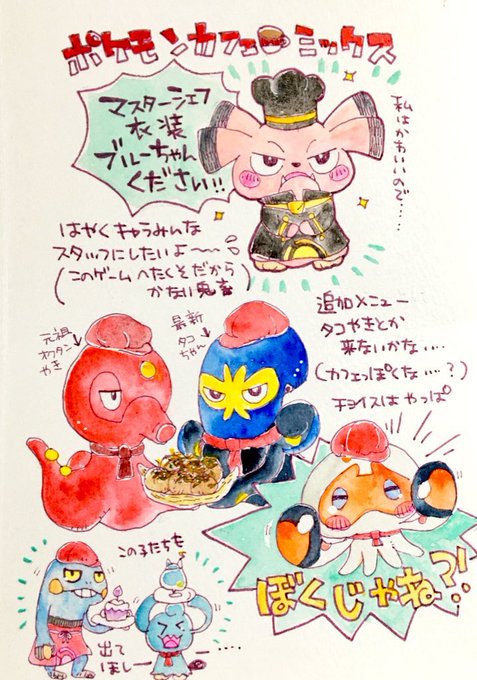 ポケモンカフェミックス
マスターシェフ
衣装
ブルーちゃん
ください!!
私はかわいいので……
はやくキャラみんな
スタッフにしたいよ〜〜
(このゲームへたくそだから
かない鬼畜
元祖
オクタン
やき
最新
タコ
ちゃん
追加メニュー
タコやきとか
来ないかな‥‥
(カフェっぽくな‥‥?)
チョイスはやっぱ
ぼくじゃね?!
この子たちも
出て
ほしー
‥‥